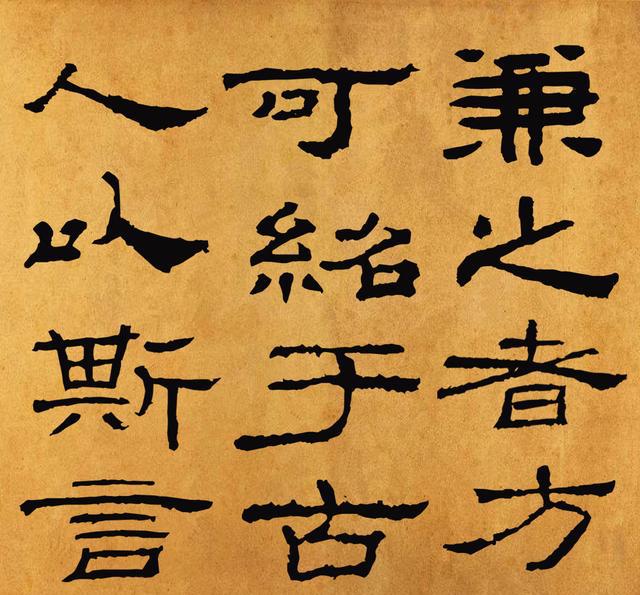 兼之者方
可紹于古
人以斯言